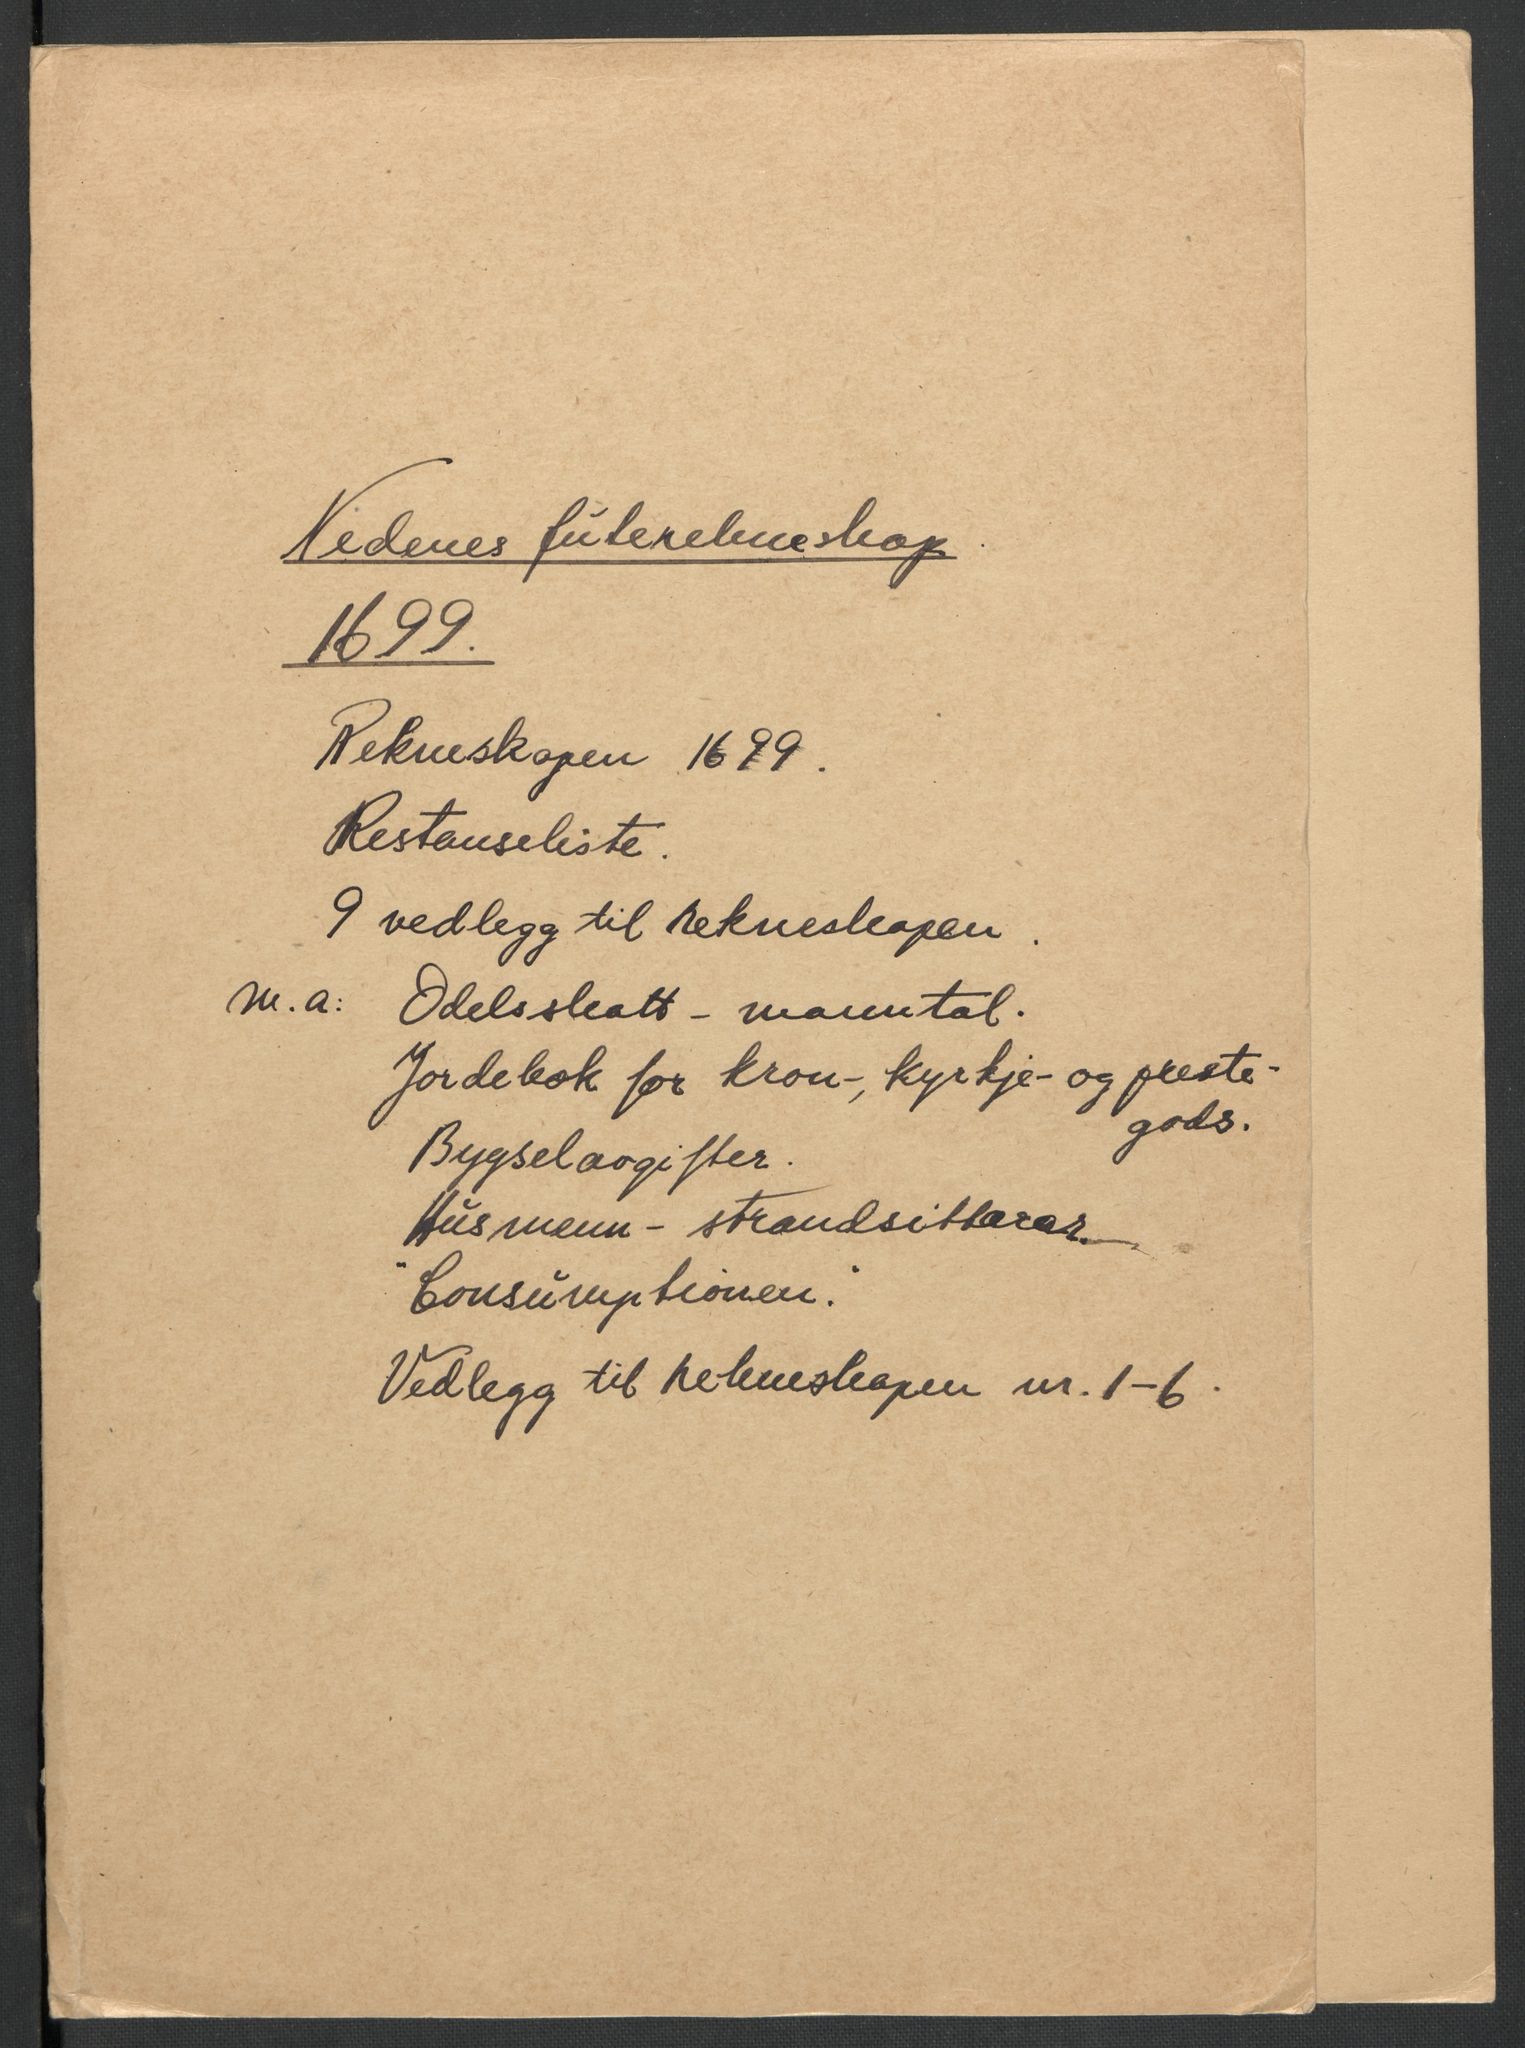 Nedenes futerekneskap.
1699.
Rekneskapen 1699.
Restanseliste.
9 vedlegg til rekneskapen.
m.a: Odelsskatt - manntal.
Jordebok for kron-, kyrkje- og preste-
gods.
Bygselavgifter.
Husmenn - strandsittarar.
"Consumptionen".
Vedlegg til rekneskapen nr. 1-6.